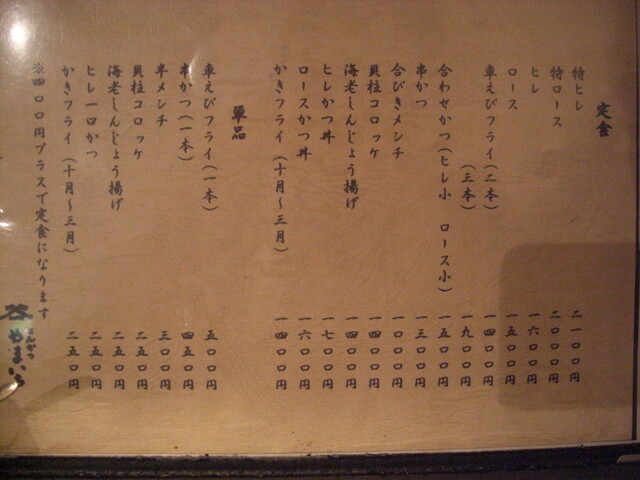 定食
特ヒレ 二一〇〇円
特ロース 二〇〇〇円
ヒレ 一六〇〇円
ロース 一五〇〇円
車えびフライ(二本) 一四〇〇円
(三本) 一九〇〇円
合わせかつ(ヒレ小 ロース小) 一五〇〇円
串かつ 一三〇〇円
合びきメンチ 一〇〇〇円
貝柱コロッケ 一四〇〇円
海老しんじょう揚げ 一四〇〇円
ヒレかつ丼 一七〇〇円
ロースかつ丼 一六〇〇円
かきフライ(十月〜三月) 一四〇〇円
単品
車えびフライ(一本) 五〇〇円
串かつ(一本) 四五〇円
半メンチ 三〇〇円
貝柱コロッケ 二五〇円
海老しんじょう揚げ 二五〇円
ヒレ一口かつ 二五〇円
かきフライ(十月〜三月) 二五〇円
※四〇〇円プラスで定食になります
とんかつ
やまいち